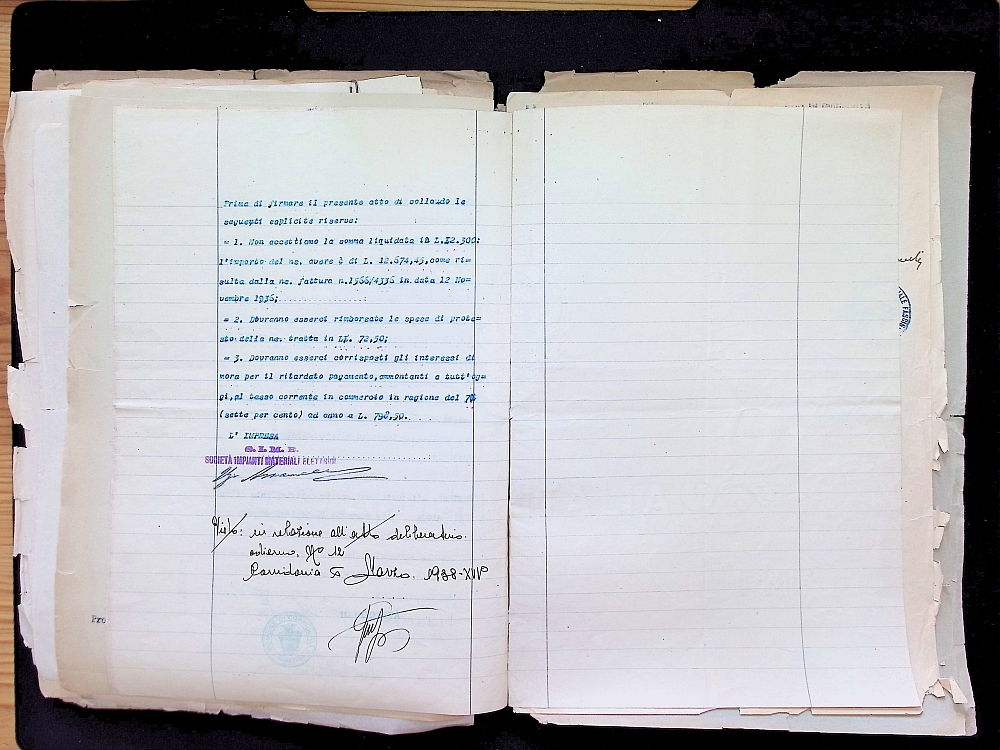 Prima di firmare il presente atto di collaudo le
seguenti esplicite riserve:
= 1. Non accettiamo la somma liquidata in L.12.300:
l'importo del ns. avere è di L. 12.674,45,come ri=
sulta dalla ns. fattura n.1566/4336 in data 12 No=
vembre 1936;
= 2. Dovranno esserci rimborsate le spese di prote=
sto della ns. tratta in L. 72,50;
= 3. Dovranno esserci corrisposti gli interessi di
mora per il ritardato pagamento,ammontanti a tutt'og=
gi,al tasso corrente in commercio in ragione del 7%
(sette per cento) ad anno a L. 798,50.
L' IMPRESA
S.I.M.E.
SOCIETÀ IMPIANTI MATERIALI ELETTRICI
Visto: in relazione all'atto deliberativo
odierno, No 12
Corridonia Marzo 1938-XVI°
Pro